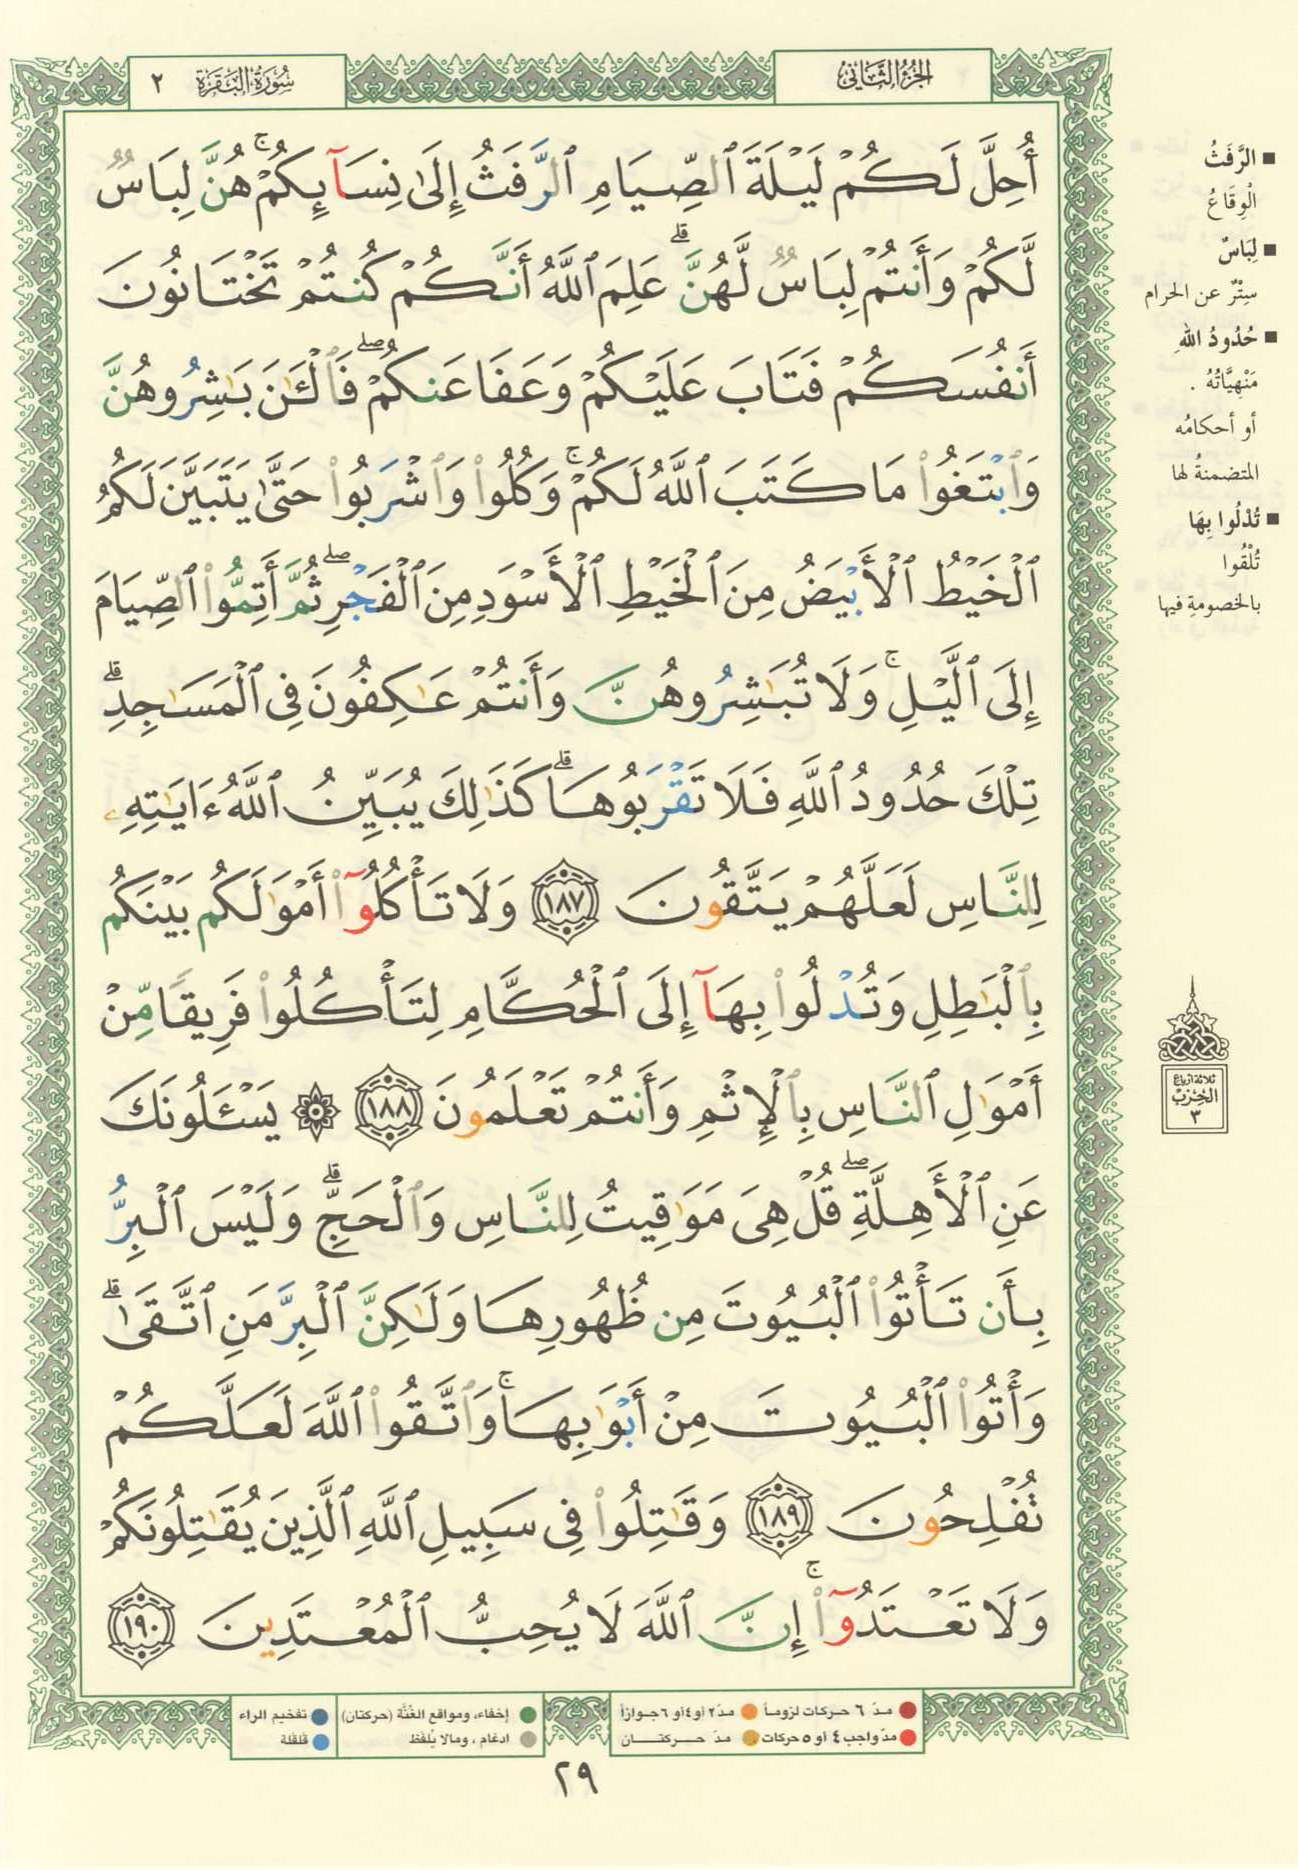 الجزء الثاني
سورة البقرة ٢
أُحِلَّ لَكُمْ لَيْلَةَ ٱلصِّيَامِ ٱلرَّفَثُ إِلَىٰ نِسَآئِكُمْ ۚ هُنَّ لِبَاسٌ
لَّكُمْ وَأَنتُمْ لِبَاسٌ لَّهُنَّ ۗ عَلِمَ ٱللَّهُ أَنَّكُمْ كُنتُمْ تَخْتَانُونَ
أَنفُسَكُمْ فَتَابَ عَلَيْكُمْ وَعَفَا عَنكُمْ ۖ فَٱلْـَٰٔنَ بَـٰشِرُوهُنَّ
وَٱبْتَغُوا۟ مَا كَتَبَ ٱللَّهُ لَكُمْ ۚ وَكُلُوا۟ وَٱشْرَبُوا۟ حَتَّىٰ يَتَبَيَّنَ لَكُمُ
ٱلْخَيْطُ ٱلْأَبْيَضُ مِنَ ٱلْخَيْطِ ٱلْأَسْوَدِ مِنَ ٱلْفَجْرِ ۖ ثُمَّ أَتِمُّوا۟ ٱلصِّيَامَ
إِلَى ٱلَّيْلِ ۚ وَلَا تُبَـٰشِرُوهُنَّ وَأَنتُمْ عَـٰكِفُونَ فِى ٱلْمَسَـٰجِدِ ۗ
تِلْكَ حُدُودُ ٱللَّهِ فَلَا تَقْرَبُوهَا ۗ كَذَٰلِكَ يُبَيِّنُ ٱللَّهُ ءَايَـٰتِهِۦ
لِلنَّاسِ لَعَلَّهُمْ يَتَّقُونَ ١٨٧ وَلَا تَأْكُلُوٓا۟ أَمْوَٰلَكُم بَيْنَكُم
بِٱلْبَـٰطِلِ وَتُدْلُوا۟ بِهَآ إِلَى ٱلْحُكَّامِ لِتَأْكُلُوا۟ فَرِيقًا مِّنْ
أَمْوَٰلِ ٱلنَّاسِ بِٱلْإِثْمِ وَأَنتُمْ تَعْلَمُونَ ١٨٨ ۞ يَسْـَٔلُونَكَ
عَنِ ٱلْأَهِلَّةِ ۖ قُلْ هِىَ مَوَٰقِيتُ لِلنَّاسِ وَٱلْحَجِّ ۗ وَلَيْسَ ٱلْبِرُّ
بِأَن تَأْتُوا۟ ٱلْبُيُوتَ مِن ظُهُورِهَا وَلَـٰكِنَّ ٱلْبِرَّ مَنِ ٱتَّقَىٰ ۗ
وَأْتُوا۟ ٱلْبُيُوتَ مِنْ أَبْوَٰبِهَا ۚ وَٱتَّقُوا۟ ٱللَّهَ لَعَلَّكُمْ
تُفْلِحُونَ ١٨٩ وَقَـٰتِلُوا۟ فِى سَبِيلِ ٱللَّهِ ٱلَّذِينَ يُقَـٰتِلُونَكُمْ
وَلَا تَعْتَدُوٓا۟ ۚ إِنَّ ٱللَّهَ لَا يُحِبُّ ٱلْمُعْتَدِينَ ١٩٠
■ الرَّفَثُ
الْوِقَاعُ
■ لِبَاسٌ
سِتْرٌ عن الحرام
■ حُدُودُ اللهِ
مَنْهِيَّاتُهُ .
أو أحكامُه
المتضمنةُ لها
■ تُدْلُوا بِهَا
تُلْقُوا
بالخصومةِ فيها
ثلاثة أرباع
الحزب
٣
مدّ ٦ حركات لزوماً مدّ ٢ أو ٤ أو ٦ جوازاً
مدّ واجب ٤ أو ٥ حركات مدّ حركتان
إخفاء، ومواقع الغُنَّة (حركتان) تفخيم الراء
ادغام ، ومالا يُلفَظ قلقلة
٢٩